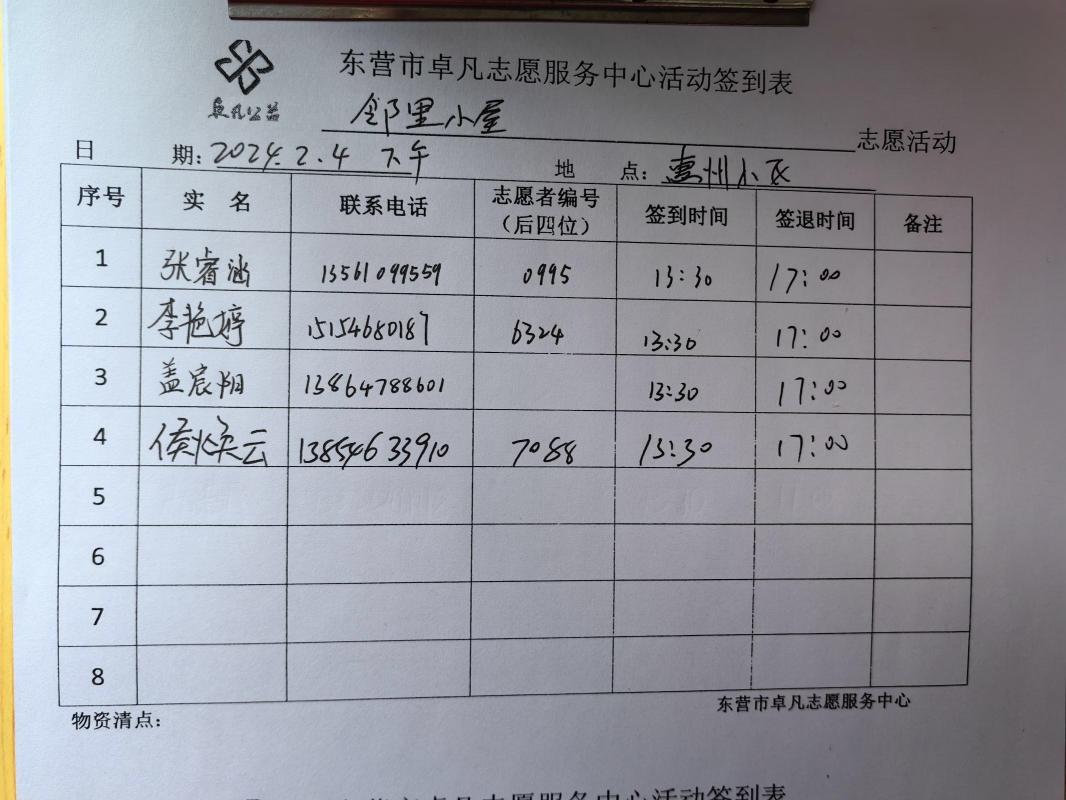 东营市卓凡志愿服务中心活动签到表
卓凡公益
邻里小屋 志愿活动
日 期：2024.2.4 下午 地 点：惠州小区
序号 实 名 联系电话 志愿者编号（后四位） 签到时间 签退时间 备注
1 张睿涵 13561099559 0995 13:30 17:00
2 李艳婷 15154680187 6324 13:30 17:00
3 盖宸阳 13864788601 13:30 17:00
4 侯焕云 13854633910 7088 13:30 17:00
5
6
7
8
物资清点： 东营市卓凡志愿服务中心
东营市卓凡志愿服务中心活动签到表